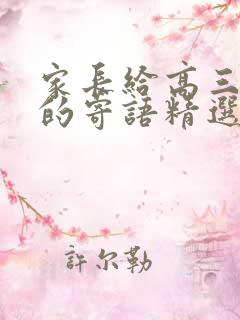 家長給高三
的寄語精選
許尔勒